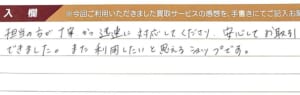 入 欄 ※今回ご利用いただきました買取サービスの感想を、手書きにてご記入お
担当の方が丁寧かつ迅速に対応してくださり、安心してお取引
できました。また利用したいと思えるショップです。